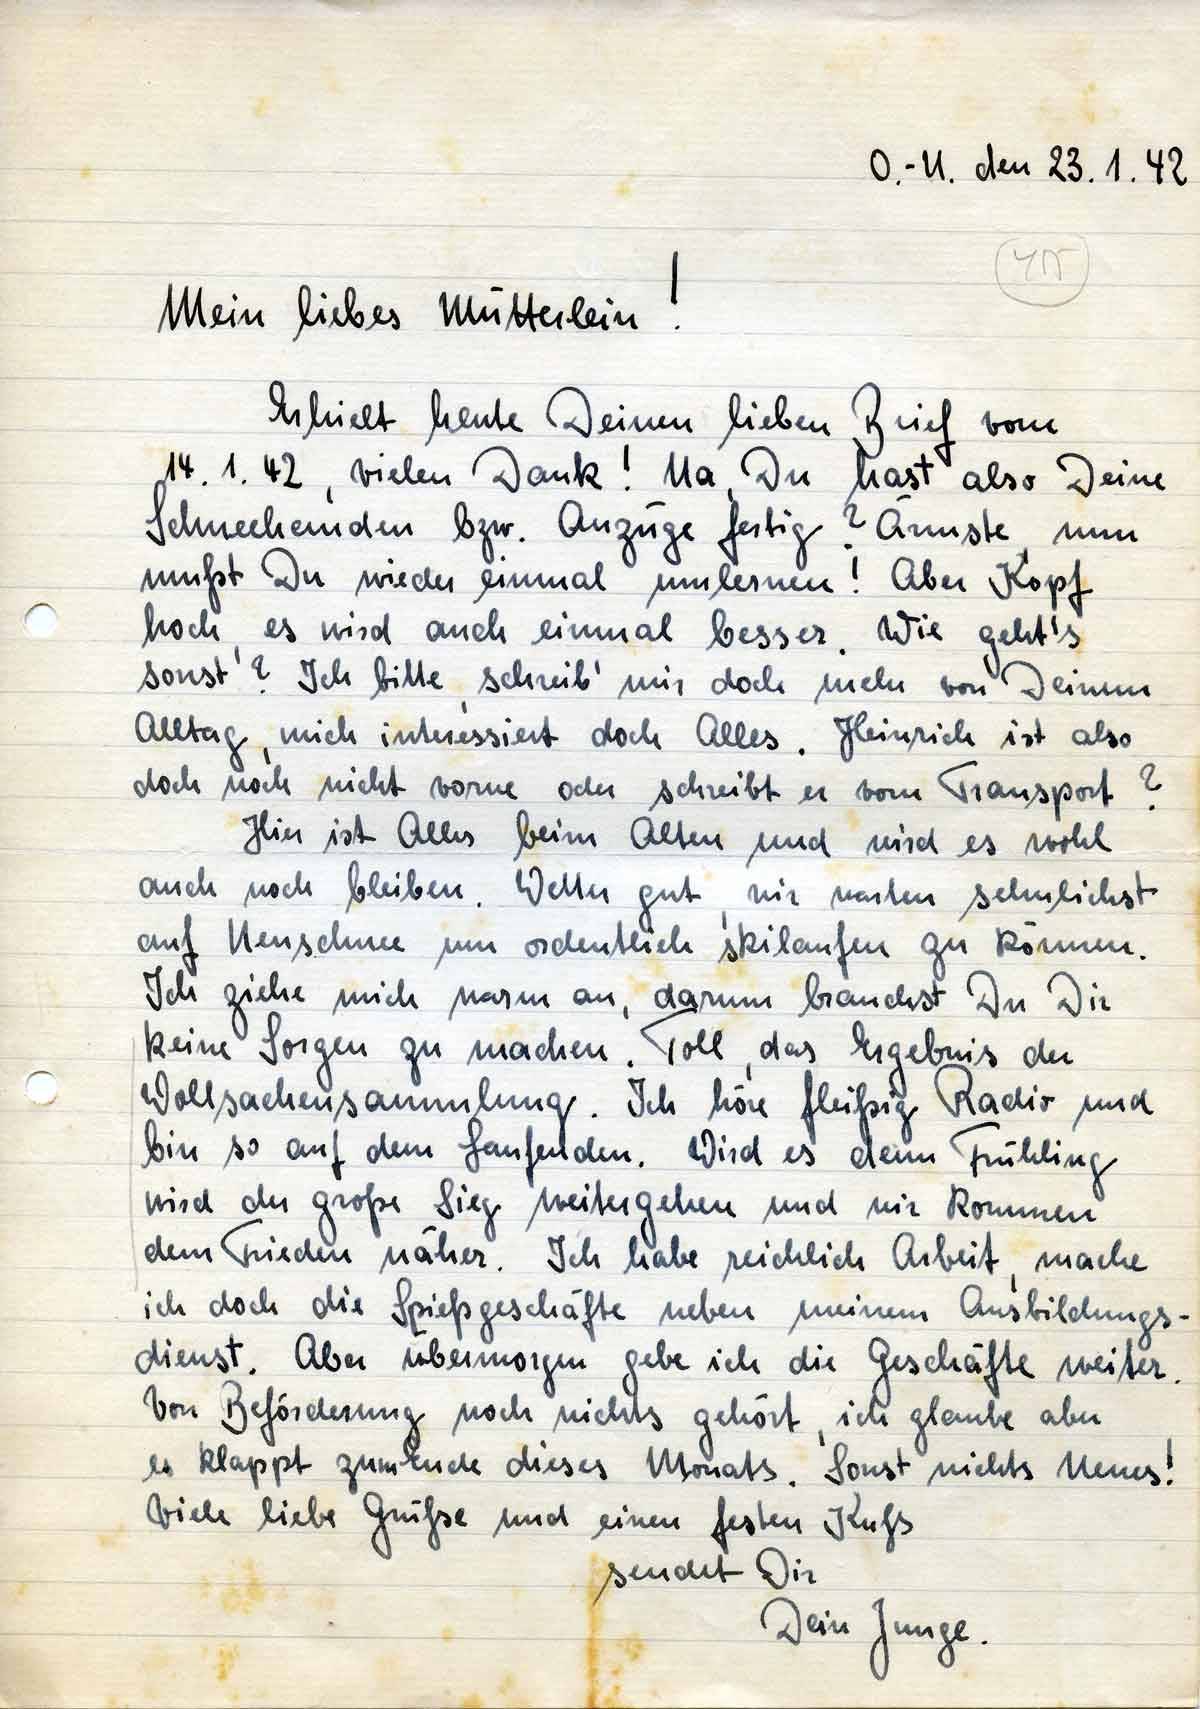 O.-U. den 23.1.42
Mein liebes Mütterlein!
Erhielt heute Deinen lieben Brief vom
14.1.42, vielen Dank! Na, Du hast also Deine
Schneehemden bzw. Anzüge fertig? Ärmste, nun
mußt Du wieder einmal umlernen! Aber Kopf
hoch, es wird auch einmal besser. Wie geht's
sonst? Ich bitte, schreib' mir doch mehr von Deinem
Alltag, mich interessiert doch Alles. Heinrich ist also
doch noch nicht vorne oder schreibt er vom Transport?
Hier ist Alles beim Alten und wird es wohl
auch noch bleiben. Wetter gut, wir warten sehnlichst
auf Neuschnee um ordentlich skilaufen zu können.
Ich ziehe mich warm an, darum brauchst Du Dir
keine Sorgen zu machen. Toll, das Ergebnis der
Wollsachensammlung. Ich höre fleißig Radio und
bin so auf dem Laufenden. Wird es denn Frühling
wird der große Sieg weitergehen und wir kommen
dem Frieden näher. Ich habe reichlich Arbeit, mache
ich doch die Spießgeschäfte neben meinem Ausbildungs-
dienst. Aber übermorgen gebe ich die Geschäfte weiter.
Von Beförderung noch nichts gehört, ich glaube aber
es klappt zum Ende dieses Monats. Sonst nichts Neues!
Viele liebe Grüße und einen festen Kuß
sendet Dir
Dein Junge.